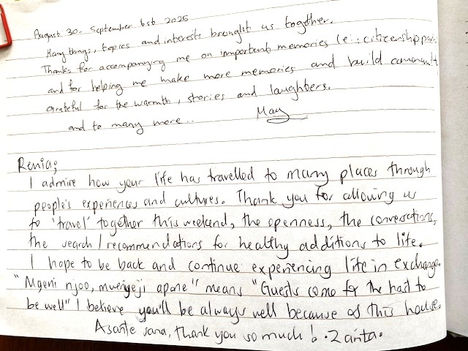 August 30. September 1st 2025
Many things, topics and interests brought us together.
Thanks for accompanying me on important memories (ie: citizenship
and for helping me make more memories and build
Grateful for the warmth, stories and laughters.
and to many more... May
Renia;
I admire how your life has travelled to many places through
people's experiences and cultures. Thank you for allowing us
to 'travel' together this weekend, the openness, the conversations,
the search/recommendations for healthy additions to life.
I hope to be back and continue experiencing life in exchange.
"Mgeni njoo, mwenyeji apone" means "Guests come for the host to
be well" I believe you'll be always well because of this house.
Asante sana, thank you so much! · Zainta.